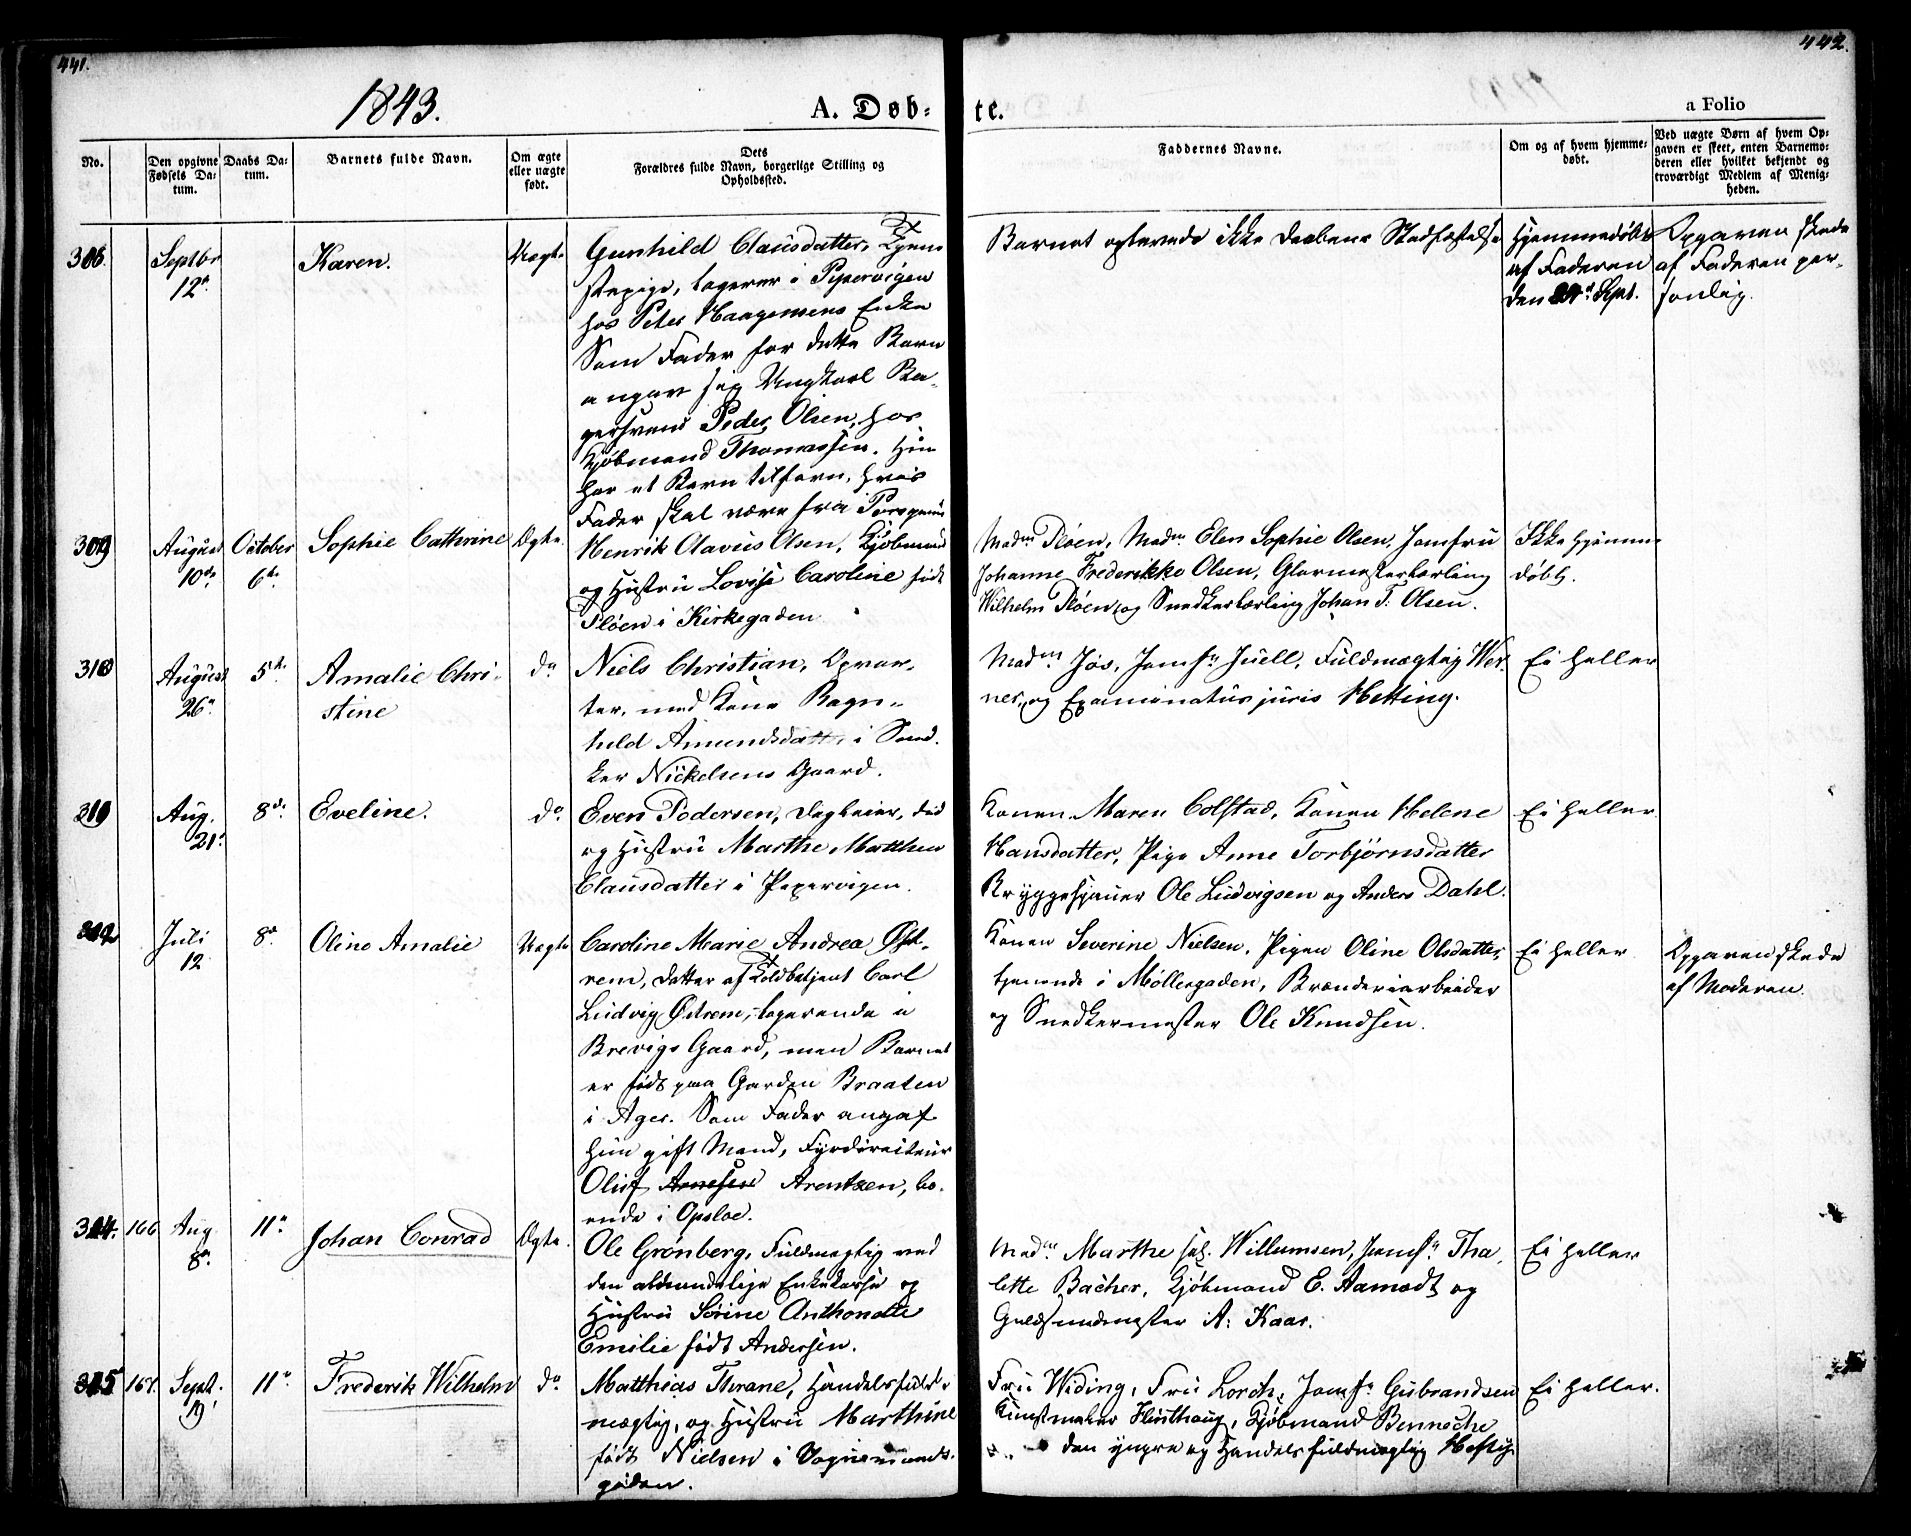 441.
442.
1843.
A. Døb-
te.
a Folio
No.
Den opgivne Fødsels Da-tum.
Daabs Da-tum.
Barnets fulde Navn.
Om ægte eller uægte født.
Dets Forældres fulde Navn, borgerlige Stilling og Opholdssted.
Faddernes Navne.
Om og af hvem hjemme-døbt.
Ved uægte Børn af hvem Op-gaven er skeet, enten Barnemo-deren eller hvilket bekjendt og troværdigt Medlem af Menig-heden.
Septbr
12te
Karen.
Uægte
Gunhild Clausdatter, Tjene-
stepige, logerer i Pipervigen
hos Peter Haagensens Enke
Som Fader for dette Barn
angav sig Ungkarl Ba-
gersvend Peder Olsen, hos
Kjøbmand Thomassen. Hun
har et Barn tilforn, hvis
Fader skal være fra Porsgrund
Barnet oplevede ikke Daabens Stadfæstelse
Hjemmedøbt
af Faderen
den Sept.
Opgaven skede
af Faderen per-
sonlig.
309
August
10de
October
6te
Sophie Cathrine
Ægte.
Henrik Olavus Olsen, Kjøbmand
og Hustru Lovise Caroline født
Pløen i Kirkegaden
Madm Pløen, Madm Elen Sophie Olsen, Jomfru
Johanne Frederikke Olsen, Glarmesterlærling
Wilhelm Pløen, og Snedkerlærling Johan T: Olsen.
Ikke hjemme
døbt.
310
August
26de
5te
Amalie Chri-
stine
do
Niels Christian, Opvar-
ter, med Kone Ragn-
hild Amundsdatter i Sned-
ker Nickelsens Gaard.
Madm Jøs, Jomfr Juell, Fuldmægtig Wer-
ner, og Examinatus juris Hetting.
Ei heller
Aug.
21de
8de
Eveline.
do
Even Pedersen, Dagleier, død
og Hustru Marthe Matthea
Clausdatter i Pipervigen.
Konen Maren Colstad, Konen Helene
Hansdatter, Pige Anne Torbjørnsdatter
Bryggesjauer Ole Ludvigsen og Anders Dahl.
Ei heller
312
Juli
12
8de
Oline Amalie
Uægte
Caroline Marie Andrea Øst-
rem, Datter af Toldbetjent Carl
Ludvig Østrem, logerende i
Brevigs Gaard, men Barnet
er født paa Gaarden Braaten
i Ager. Som Fader angaf
hun gift Mand, Fyrdirecteur
Oluf Arnesen Arentzen, bo-
ende i Opsloe.
Konen Severine Nielsen, Pigen Oline Olsdatter,
tjenende i Møllergaden, Brænderiarbeider
og Snedkermester Ole Knudsen.
Ei heller
Opgaven skede
af Moderen.
314. 166
Aug
8de
11te
Johan Conrad
Ægte.
Ole Grønberg, Fuldmægtig ved
den almindelige Enkekasse og
Hustru Sørine Anthonette
Emilie født Andersen.
Madm Marthe sal. Willumsen, Jomfr Tha-
lette Bacher, Kjøbmand E. Aamodt og
Guldsmedmester A: Kaas.
Ei heller
315 167.
Sept.
19
11te
Frederik Wilhelm
do
Matthias Thrane, Handelsfuld-
mægtig, og Hustru Marthine
født Nielsen i Vognmands-
gaden.
Fru Widing, Fru Lorch, Jomfr Gubrandsen
Kunstmaler Flinthaug, Kjøbmand Benneche
den yngre og Handelsfuldmægtig Heftye
Ei heller.